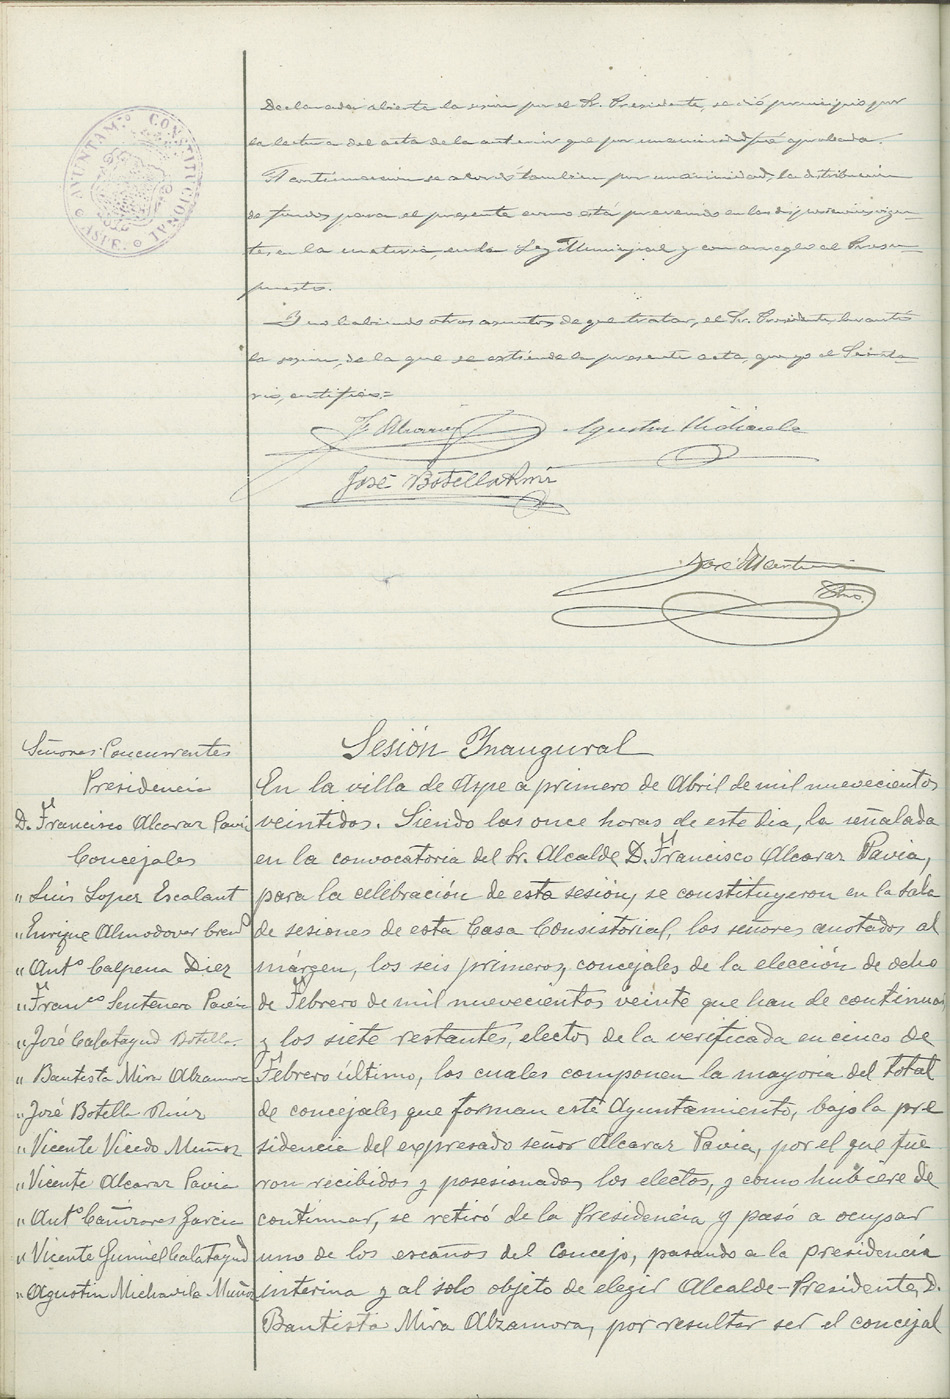 AYUNTAM.º CONSTITUCIONAL
ASPE.
Declarada abierta la sesión por el Sr. Presidente, se dió principio por
la lectura del acta de la anterior que por unanimidad fué aprobada.
A continuación se acordó también por unanimidad, la distribución
de fondos para el presente como está prevenido en las disposiciones vigen-
tes en la materia, en la Ley Municipal y con arreglo al Presu-
puesto.
Y no habiendo otros asuntos de que tratar, el Sr. Presidente levantó
la sesión, de la que se extiende la presente acta, que yo el Secreta-
rio, certifico=
F Alcaraz
Agustin Michavila
José Botella Rmir
José Martin
Srio.
Señores Concurrentes
Presidencia
D. Francisco Alcaraz Pavia
Concejales
" Luis Lopez Escalant
" Enrique Almodovar
" Antº Calpena Diez
" Franco Sentenero Pavia
" José Calatayud Botella
" Bautista Mira Abzamora
" José Botella
" Vicente Vicedo Muñoz
" Vicente Alcaraz Pavia
" Antº Cañizares Garcia
" Vicente Gumiel Calatayud
" Agustin Michavila Muñoz
Sesión Inaugural
En la villa de Aspe a primero de Abril de mil nuevecientos
veintidos. Siendo las once horas de este dia, la señalada
en la convocatoria del Sr. Alcalde D. Francisco Alcaraz Pavia,
para la celibración de esta sesión, se constituyeron en la sala
de sesiones de esta Casa Consistorial, los señores anotados al
márgen, los seis primeros, concejales de la elección de ocho
de Febrero de mil nuevecientos veinte que han de continuar
y los siete restantes, electos de la verificada en cinco de
Febrero último, los cuales componen la mayoria del total
de concejales que forman este Ayuntamiento, bajo la pre
sidencia del expresado señor Alcaraz Pavia, por el que fue
ron recibidos y posesionados los electos, y como hubiere de
continuar, se retiró de la Presidencia y pasó a ocupar
uno de los escaños del Concejo, pasando a la presidencia
interina y al solo objeto de elegir Alcalde-Presidente, D.
Bautista Mira Abzamora, por resultar ser el concejal